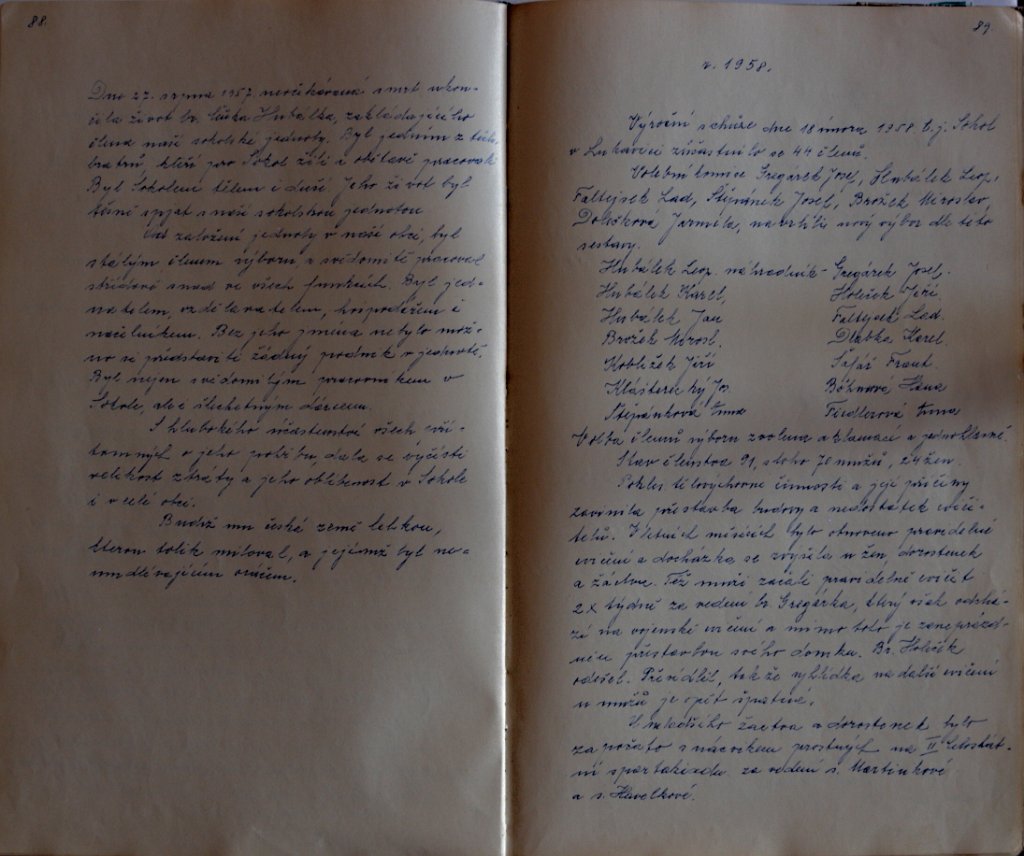 88.
Dne 27. srpna 1957. neočekávaná smrt ukon-
čila život br. Hubálka, zakládajícího
člena naší sokolské jednoty. Byl jedním z těch
bratrů, kteří pro Sokol žili a obětavě pracovali
Byl Sokolem tělem i duší. Jeho život byl
těsně spjat s naší sokolskou jednotou
Od založení jednoty v naší obci, byl
stálým členem výboru, a svědomitě pracoval
střídavě snad ve všech funkcích. Byl jed-
natelem, vzdělavatelem, hospodářem i
náčelníkem. Bez jeho jména nebylo mož-
no si představiti žádný podnik v jednotě.
Byl nejen svědomitým pracovníkem v
Sokole, ale i šlechetným dárcem.
S hlubokého účastenství všech pří-
tomných o jeho pohřbu, dala se vyčísti
velikost ztráty a jeho oblíbenost v Sokole
i v celé obci.
Budiž mu česká země lehkou,
kterou tolik miloval, a jejímž byl ne-
umdlévajícím oráčem.
89.
r. 1958.
Výroční schůze dne 18 února 1958 t. j. Sokol
v Lukavici zúčastnilo se 44 členů.
Volební komice Gregárek Josef, Hubálek Leop.,
Faltejsek Lad, Štěpánek Josef, Brožek Miroslav,
Dolečková Jarmila, navrhla nový výbor dle této
sestavy.
Hubálek Leop. náhradník - Gregárek Josef.
Hubálek Karel, Holeček Jiří.
Hubálek Jan Faltejsek Lad.
Brožek Mirosl. Dlabka Karel
Koblížek Jiří Šafář Frant.
Klášterecký Jos Hana
Štěpánková Anna Fiedlerová Anna
Volba členů výboru zvolena aklamací a jednohlasně.
Stav členstva 91, z toho 70 mužů, 24 žen.
Pokles tělovýchovné činnosti a její příčiny
zavinila přestavba budovy a nedostatek cviči-
telů. V letních měsících bylo otevřeno pravidelné
cvičení a docházka se zvýšila u žen, dorostenek
a žáctva. Též muži začali pravidelně cvičit
2x týdně za vedení br. Gregárka, který však odchá-
zí na vojenské cvičení a mimo toto je zaneprázd-
něn přestavbou svého domku. Br. Holeček
odešel. Přesídlil, takže vyhlídka na další cvičení
u mužů je opět špatná.
U mladšího žactva a dorostenek bylo
započato s nácvikem prostných na II. Celostát-
ní spartakiádu za vedení s. Martinkové
a s. Havelkové.